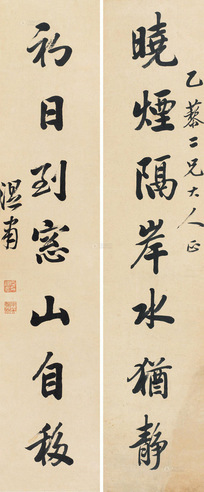 乙藜二兄大人正
曉煙隔岸水猶靜
初日到窓山自移
温甫